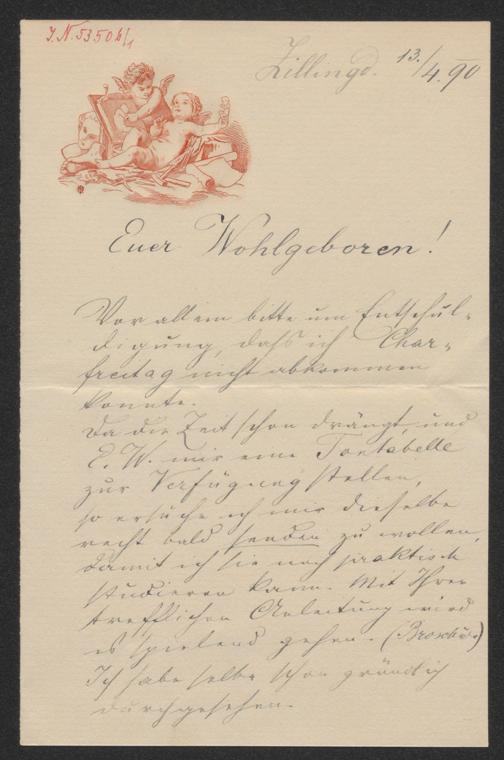 J.N. 53506/1
Zillingd. 13./4.90
Euer Wohlgeboren!
Vor allem bitte um Entschul-
digung, daß ich Char-
freitag nicht abkommen
konnte.
Da die Zeit schon drängt, und
E. W. mir eine Tontabelle
zur Verfügung stellen,
so ersuche ich mir dieselbe
recht bald senden zu wollen,
damit ich sie noch praktisch
studieren kann. Mit Ihrer
trefflichen Anleitung wird
es spielend gehen. (Broschüre)
Ich habe selbe schon gründlich
durchgesehen.